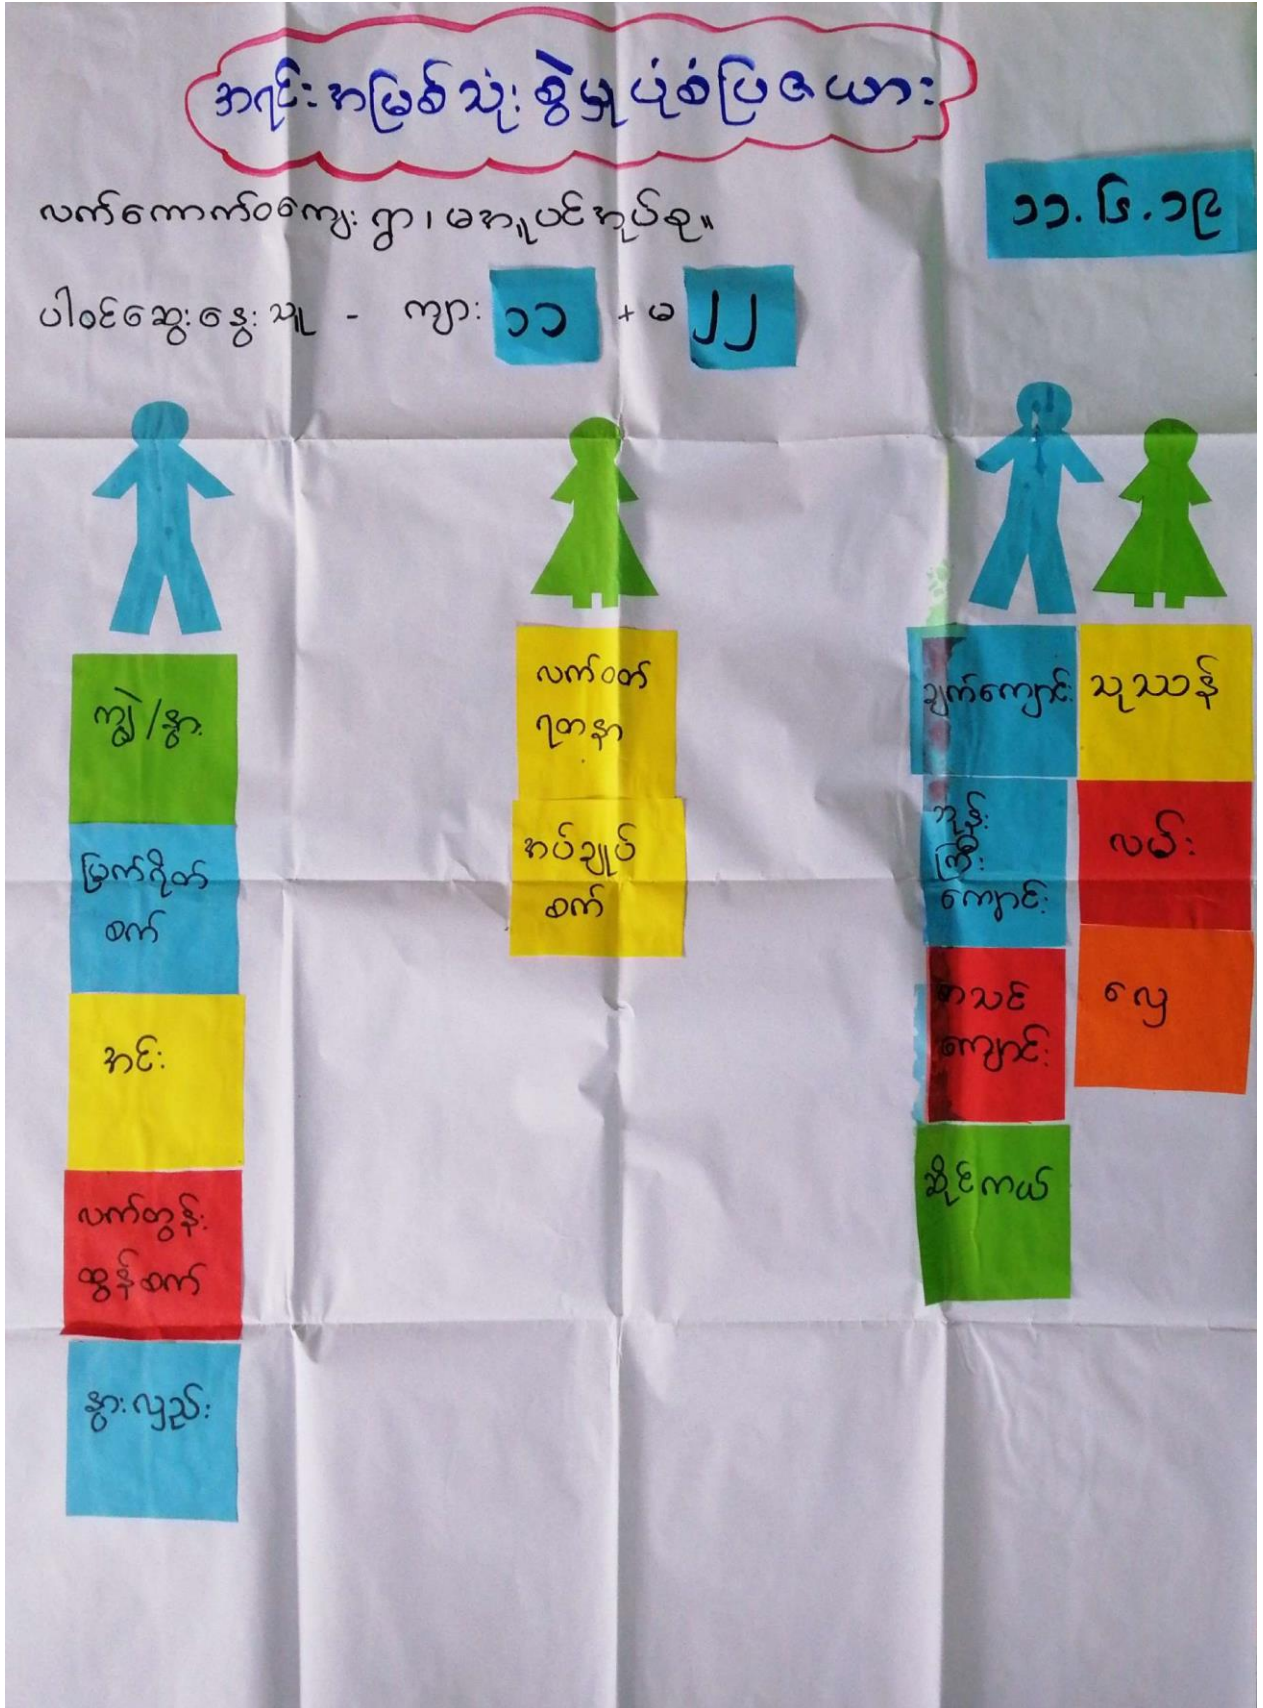 အရင်းအမြစ်သုံးစွဲမှုပုံစံပြဇယား
လက်ကောက်ဝကျေးရွာ၊ မအူပင်အုပ်စု။
၁၁.၆.၁၉
ပါဝင်ဆွေးနွေးသူ - ကျား ၁၁ + မ ၂၂
ကျွဲ/နွား
မြက်ရိတ်
စက်
အင်း
လက်တွန်း
ထွန်စက်
နွားလှည်း
လက်ဝတ်
ရတနာ
အပ်ချုပ်
စက်
ချက်ကျောင်း
ဘုန်း
ကြီး
ကျောင်း
စာသင်
ကျောင်း
ဆိုင်ကယ်
သုဿာန်
လမ်း
လှေ